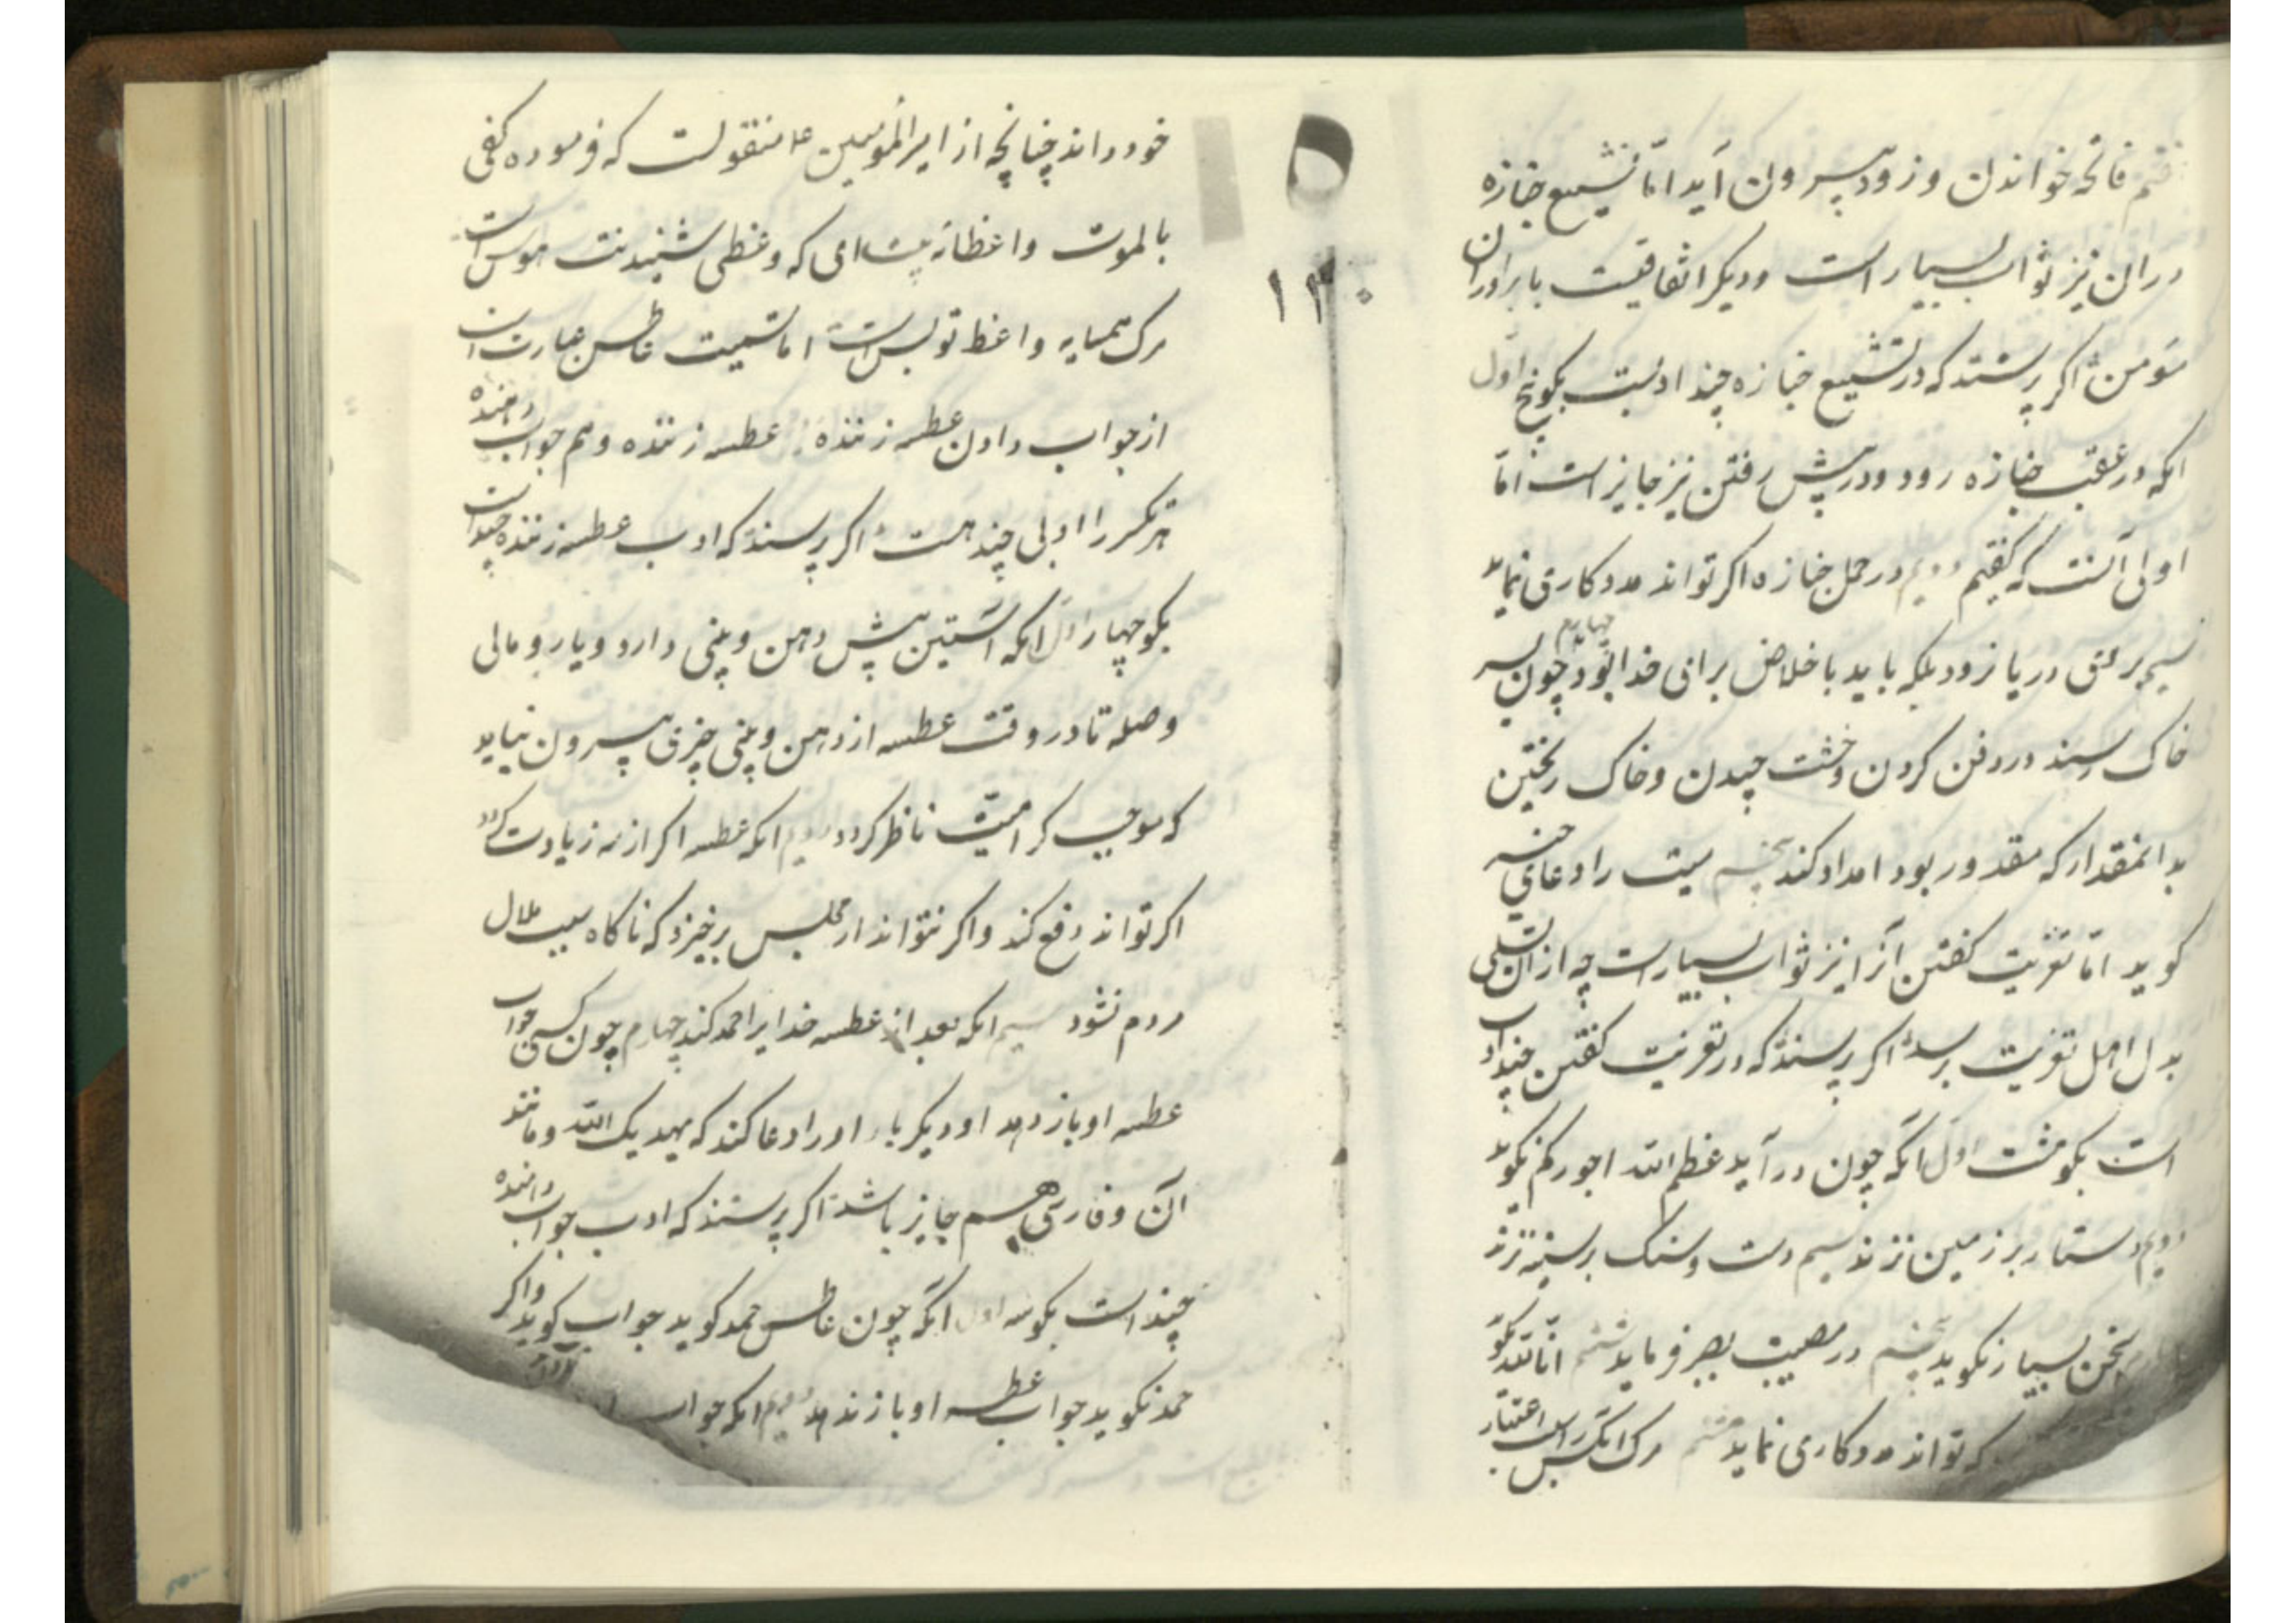 فاتحه خواندن و زود بیرون آید امّا تشییع جنازه
در ان نیز ثواب بسیار است و دیکر اتفاقیست با برادران
مؤمن اکر پرسند که در تشییع جنازه چند ادبست بکو پنج اول
انکه در عقب جنازه رود و در پیش رفتن نیز جایز است امّا
اولی آنست که کفتیم دویم در حمل جنازه اکر تواند مددکاری نماید
سیم بر ریا نرود بلکه باید باخلاص برای خدا بود چهارم چون بسر
خاک رسند در دفن کردن و خشت چیدن و خاک ریختن
بدانمقدار که مقدور بود امداد کند پنجم میت را دعای خیر
کوید امّا تعزیت کفتن آنرا نیز ثواب بسیار است چه از ان تسلی
بدل اهل تعزیت برسد اکر پرسند که در تعزیت کفتن چند ادب
است بکو هشت اول آنکه چون در آید عظم الله اجورکم بکوید
دویم دستار بر زمین نزند سیم دست و سنک بر سینه نزند
سخن بسیار نکوید پنجم در مصیبت بصبر فرماید ششم انّا لله بکوید
که تواند مددکاری نماید هشتم مرک انکس را اعتبار
۱۳۰
خود داند چنانچه از امیرالمؤمنین ع منقولست که فرموده کفی
بالموت واعظا ای که وعظی شنیدنت هوس است
مرک همسایه واعظ تو بس است اما تشمیت عاطس عبارت است
از جواب دادن عطسه زننده عطسه زننده و هم جواب دهنده
هر یک را ادبی چند هست اکر پرسند که ادب عطسه زننده چند است
بکو چهار اول انکه آستین پیش دهن و بینی دارد و یا رومالی
وصله تا در وقت عطسه از دهن و بینی چیزی بیرون نیاید
که موجب کراهیت ناظر کردد دویم انکه عطسه اکر از سه زیادت کردد
اکر تواند دفع کند و اکر نتواند از مجلس برخیزد که ناکاه سبب ملال
مردم نشود سیم انکه بعد از عطسه خدایرا حمد کند چهارم چون کسی جواب
عطسه او باز دهد او دیکر بار او را دعا کند که یهدیک الله و مانند
آن و فارسی هم جایز باشد اکر پرسند که ادب جواب دهنده
چند است بکو سه اول انکه چون عاطس حمد کوید جواب کوید و اکر
حمد نکوید جواب عطسه او باز ندهد دویم انکه جواب